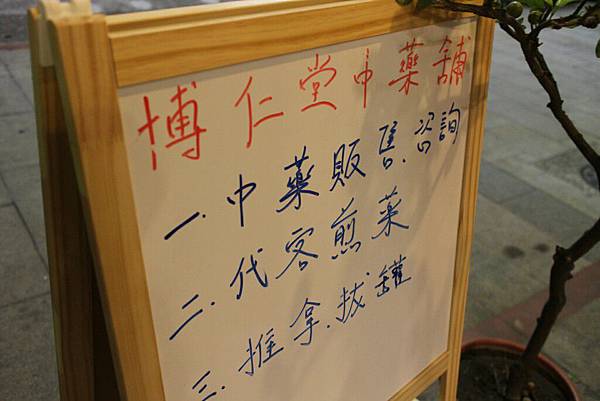 博仁堂中藥舖
一.中藥販售.咨詢
二.代客煎藥
三.推拿.拔罐